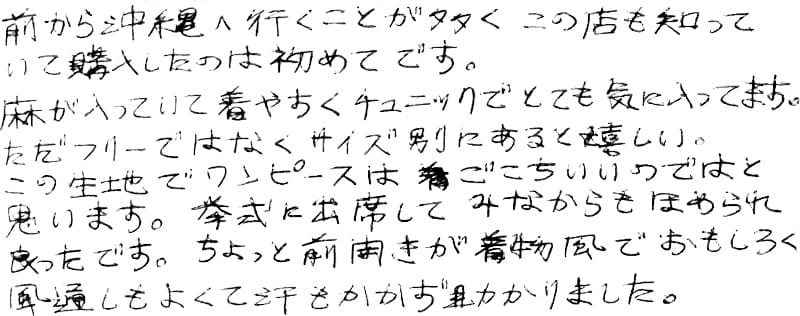 前から沖縄へ行くことが多く この店も知って
いて購入したのは初めてです。
麻が入っていて着やすくチュニックでとても気に入ってます。
ただフリーではなくサイズ別にあると嬉しい。
この生地でワンピースは着ごこちいいのではと
思います。挙式に出席して みなからもほめられ
良ったです。ちょっと前開きが着物風でおもしろく
風通しもよくて汗もかかず助かりました。